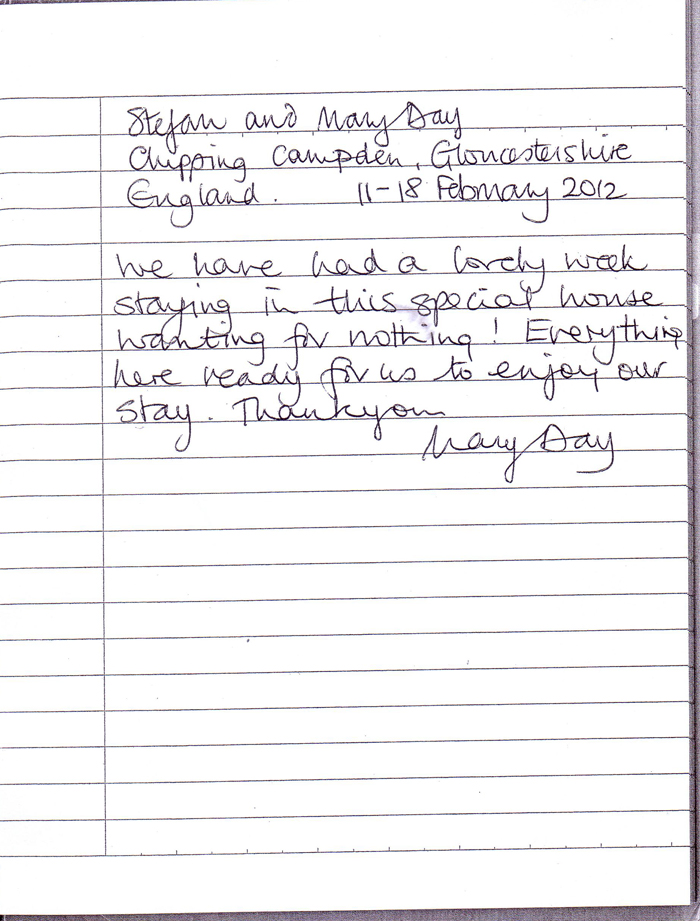 Stefan and Mary Day
Chipping Campden, Gloucestershire
England. 11-18 February 2012
We have had a lovely week
staying in this special house
wanting for nothing! Everything
here ready for us to enjoy our
stay. Thankyou
Mary Day